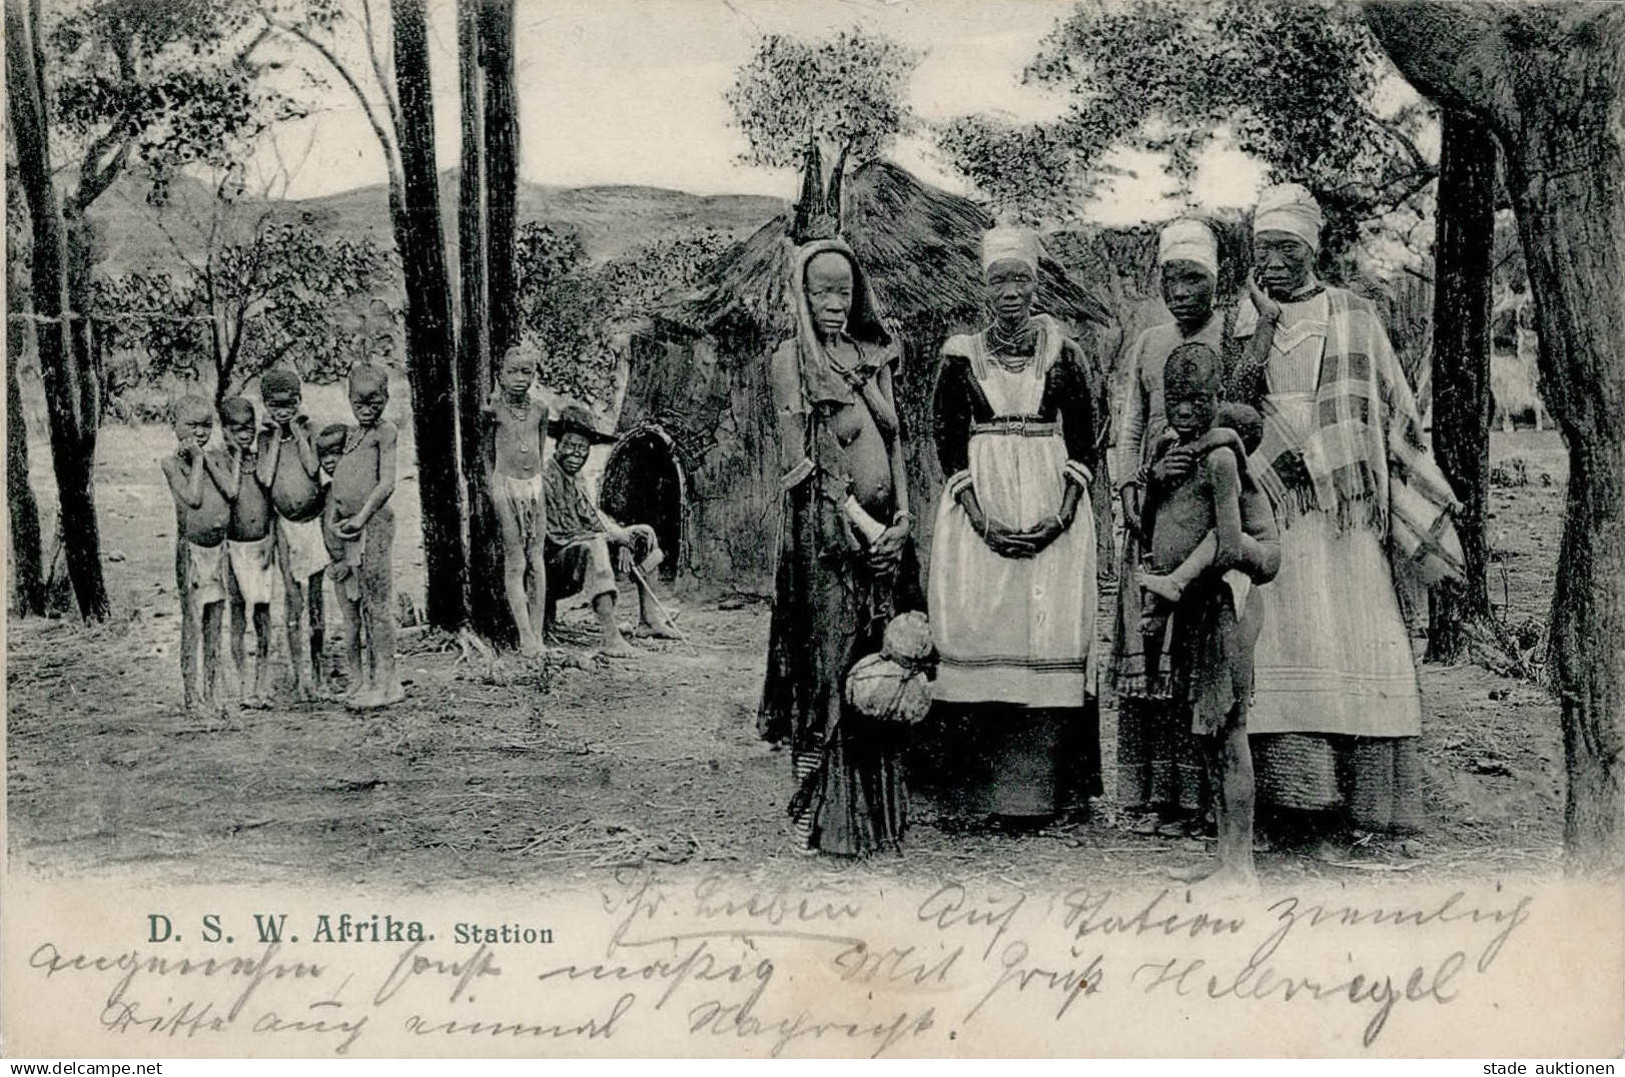 D. S. W. Afrika. Station
Ihr Lieben! Auf Station ziemlich
angenehm, sonst mäßig. Mit Gruß Hellriegel
Bitte auch einmal Nachricht.
delcampe.net
stade auktionen